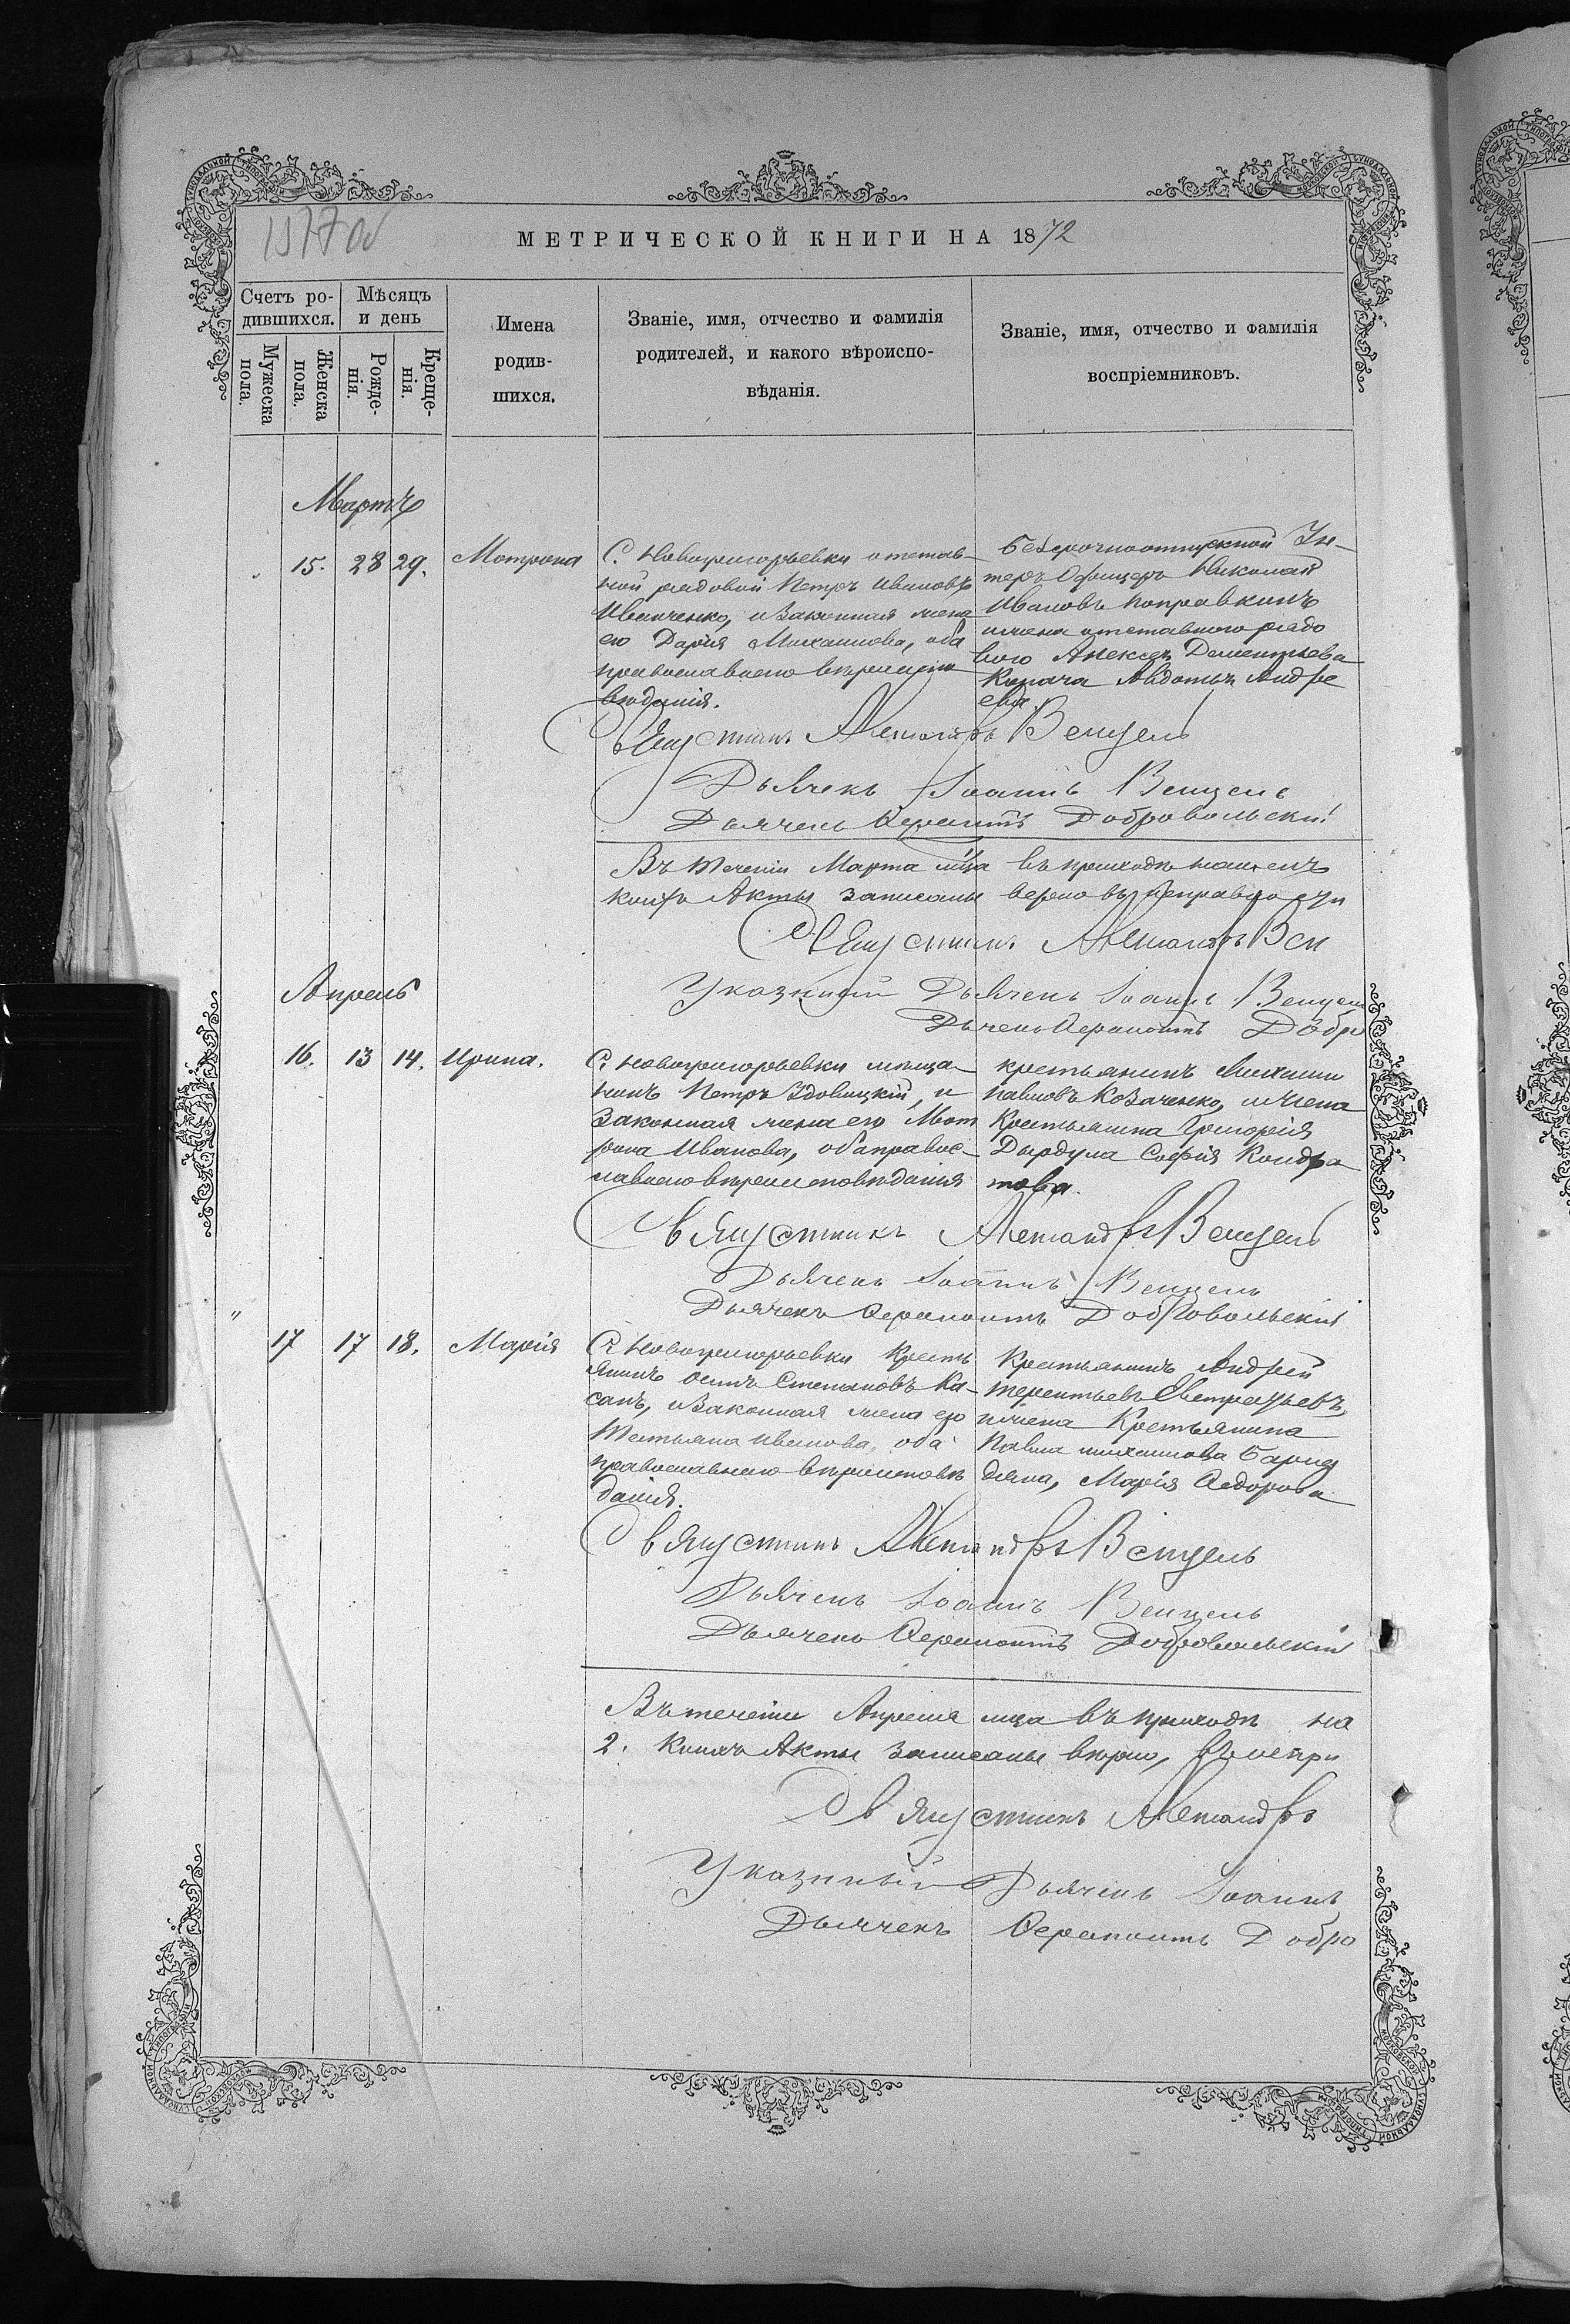 1377 об
МЕТРИЧЕСКОЙ КНИГИ НА 1872
Счетъ родившихся.
Мѣсяцъ и день
Мужеска пола.
Женска пола.
Рожденія.
Крещенія.
Имена родившихся.
Званіе, имя, отчество и фамилія
родителей, и какого вѣроиспо-
вѣданія.
Званіе, имя, отчество и фамилія
воспріемниковъ.
Мартъ
15. 28 29. Мотрона
С. Новогригорьевки отстав-
ной рядовой Петръ Ивановъ
Иванченко, и законная жена
его Дарія Михаилова, оба
православнаго вѣроиспо
вѣданія.
Безсрочноотпускной Ун-
теръ Офицеръ Николай
Ивановъ Поправкинъ
и жена отставного рядо
вого Алексея Дементьева
Копача Авдотья Андре
ева.
Священникъ Александръ Венцель
Дьячекъ Іоаннъ Венцель
Дьячекъ Ѳерапонтъ Добровольскій
Въ теченіи Марта мца въ приходѣ нашемъ
коихъ Акты записаны верно въ
Священникъ Александръ Вен
Указный Дьячекъ Іоаннъ Венцель
Дьячекъ Ѳерапонтъ Добро
Апрель
16. 13 14. Ирина.
С. Новогригорьевки мѣща-
нинъ Петръ Здовицкій, и
законная жена его Мот
рона Иванова, оба правос-
лавного вѣроисповѣданія
крестьянинъ Михаилъ
Павловъ Козаченко, и жена
Крестьянина Григорія
Дырдула Софія Кондра
това.
Священникъ Александръ Венцель
Дьячекъ Іоаннъ Венцель
Дьячекъ Ѳерапонтъ Добровольскій
" 17 17 18. Марія
С. Новогригорьевки Кресть
янинъ Осипъ Степановъ Ка-
санъ, и законная жена его
Татьяна Иванова, оба
православнаго вѣроисповѣ
данія.
Крестьянинъ Андрей
Терентьевъ
и жена Крестьянина
Павла Михаилова
Марія Ѳедорова
Священникъ Александръ Венцель
Дьячекъ Іоаннъ Венцель
Дьячекъ Ѳерапонтъ Добровольскій
Въ теченіи Апреля мца въ приходѣ на
2. коихъ Акты записаны вѣрно,
Священникъ Александръ
Указный Дьячекъ Іоаннъ
Дьячекъ Ѳерапонтъ Добро